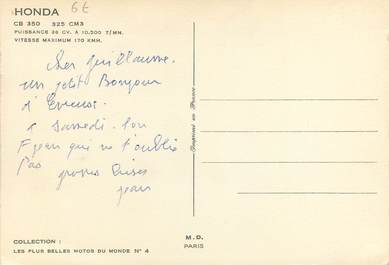 HONDA 6E
CB 350 325 CM3
PUISSANCE 36 CV. A 10.500 T/MN.
VITESSE MAXIMUM 170 KMH.
cher guillaume.
un petit Bonjour
d'
à samedi. ton
F jean qui ne t'oublie
Pas grosses Bises
jean
Imprimé en France
COLLECTION :
LES PLUS BELLES MOTOS DU MONDE N° 4
M.D.
PARIS